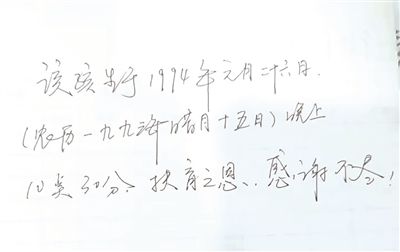 该孩生于1994年元月二十六日.
(农历一九九三年腊月十五日)晚上
10点30分. 扶育之恩、感谢不尽!